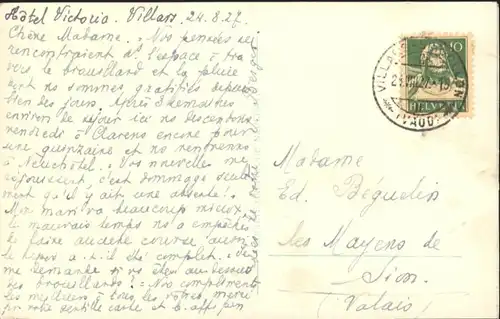 Hôtel Victoria. Villars. 24.8.27.
Chère Madame. Nos pensées se
rencontraient ds. l'espace à tra
vers le brouillard et la pluie
dont ns sommes gratifiés depuis
bien des jours. Après 3 semaines
environ de séjour ici ns descendons
vendredi à Clarens encore pour
une quinzaine et ns rentrerons
à Neuchâtel. Vos nouvelles me
réjouissent, c'est dommage seule
ment qu'il y ait une absente!
Mon mari va beaucoup mieux
le mauvais temps ns a empêchés
de faire aucune course aussi
le repos a-t-il été complet. Je
me demande si vs êtes au dessus
des brouillards? Nos compliments
les meilleurs à tous les vôtres, merci
pr votre gentille carte et b. afftment
VILLARS
(VAUD)
10
HELVETIA
Madame
Ed. Béguelin
Les Mayens de
Sion
(Valais)